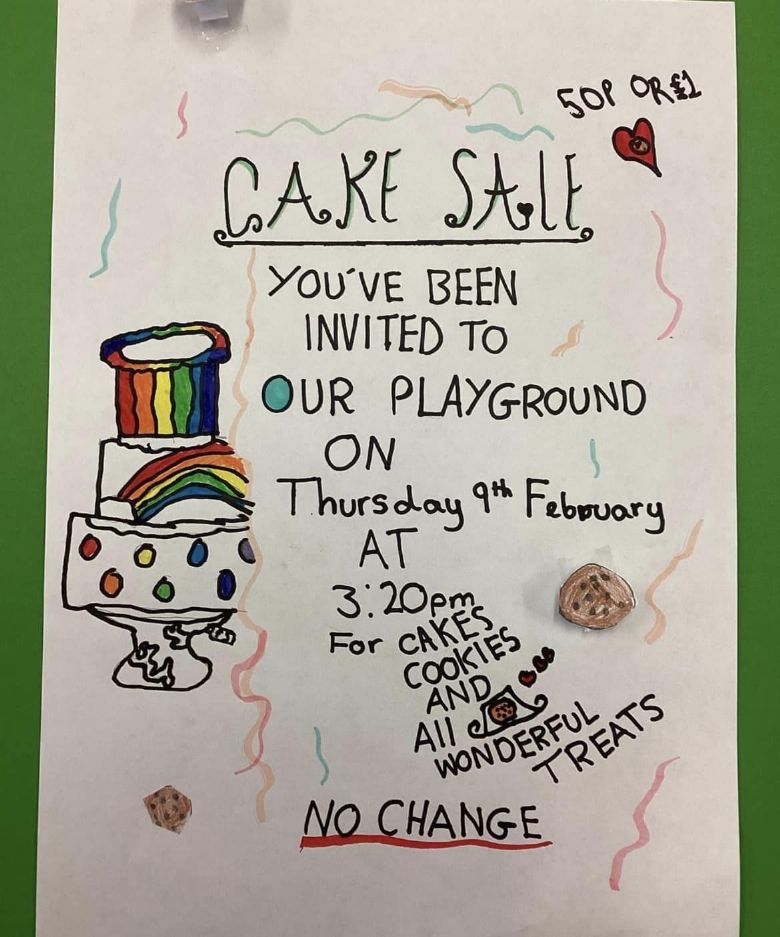 50P OR £1
CAKE SALE
YOU'VE BEEN
INVITED TO
OUR PLAYGROUND
ON
Thursday 9th February
AT
3:20pm
For CAKES
COOKIES
AND
All
WONDERFUL
TREATS
NO CHANGE